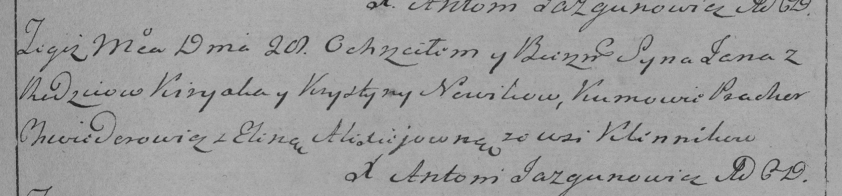 X. Antoni Jazgunowicz AD CD.
Tegiż Mca Dnia 28. Ochrzciłem y Bierzm Syna Jana z
Rodziców Kiryaka y Krystyny Nowikow, Kumowie Prachor
Chwiederowicz z Eliną Alexiejowną ze wsi Klinnikow
X Antoni Jazgunowicz AD CD.